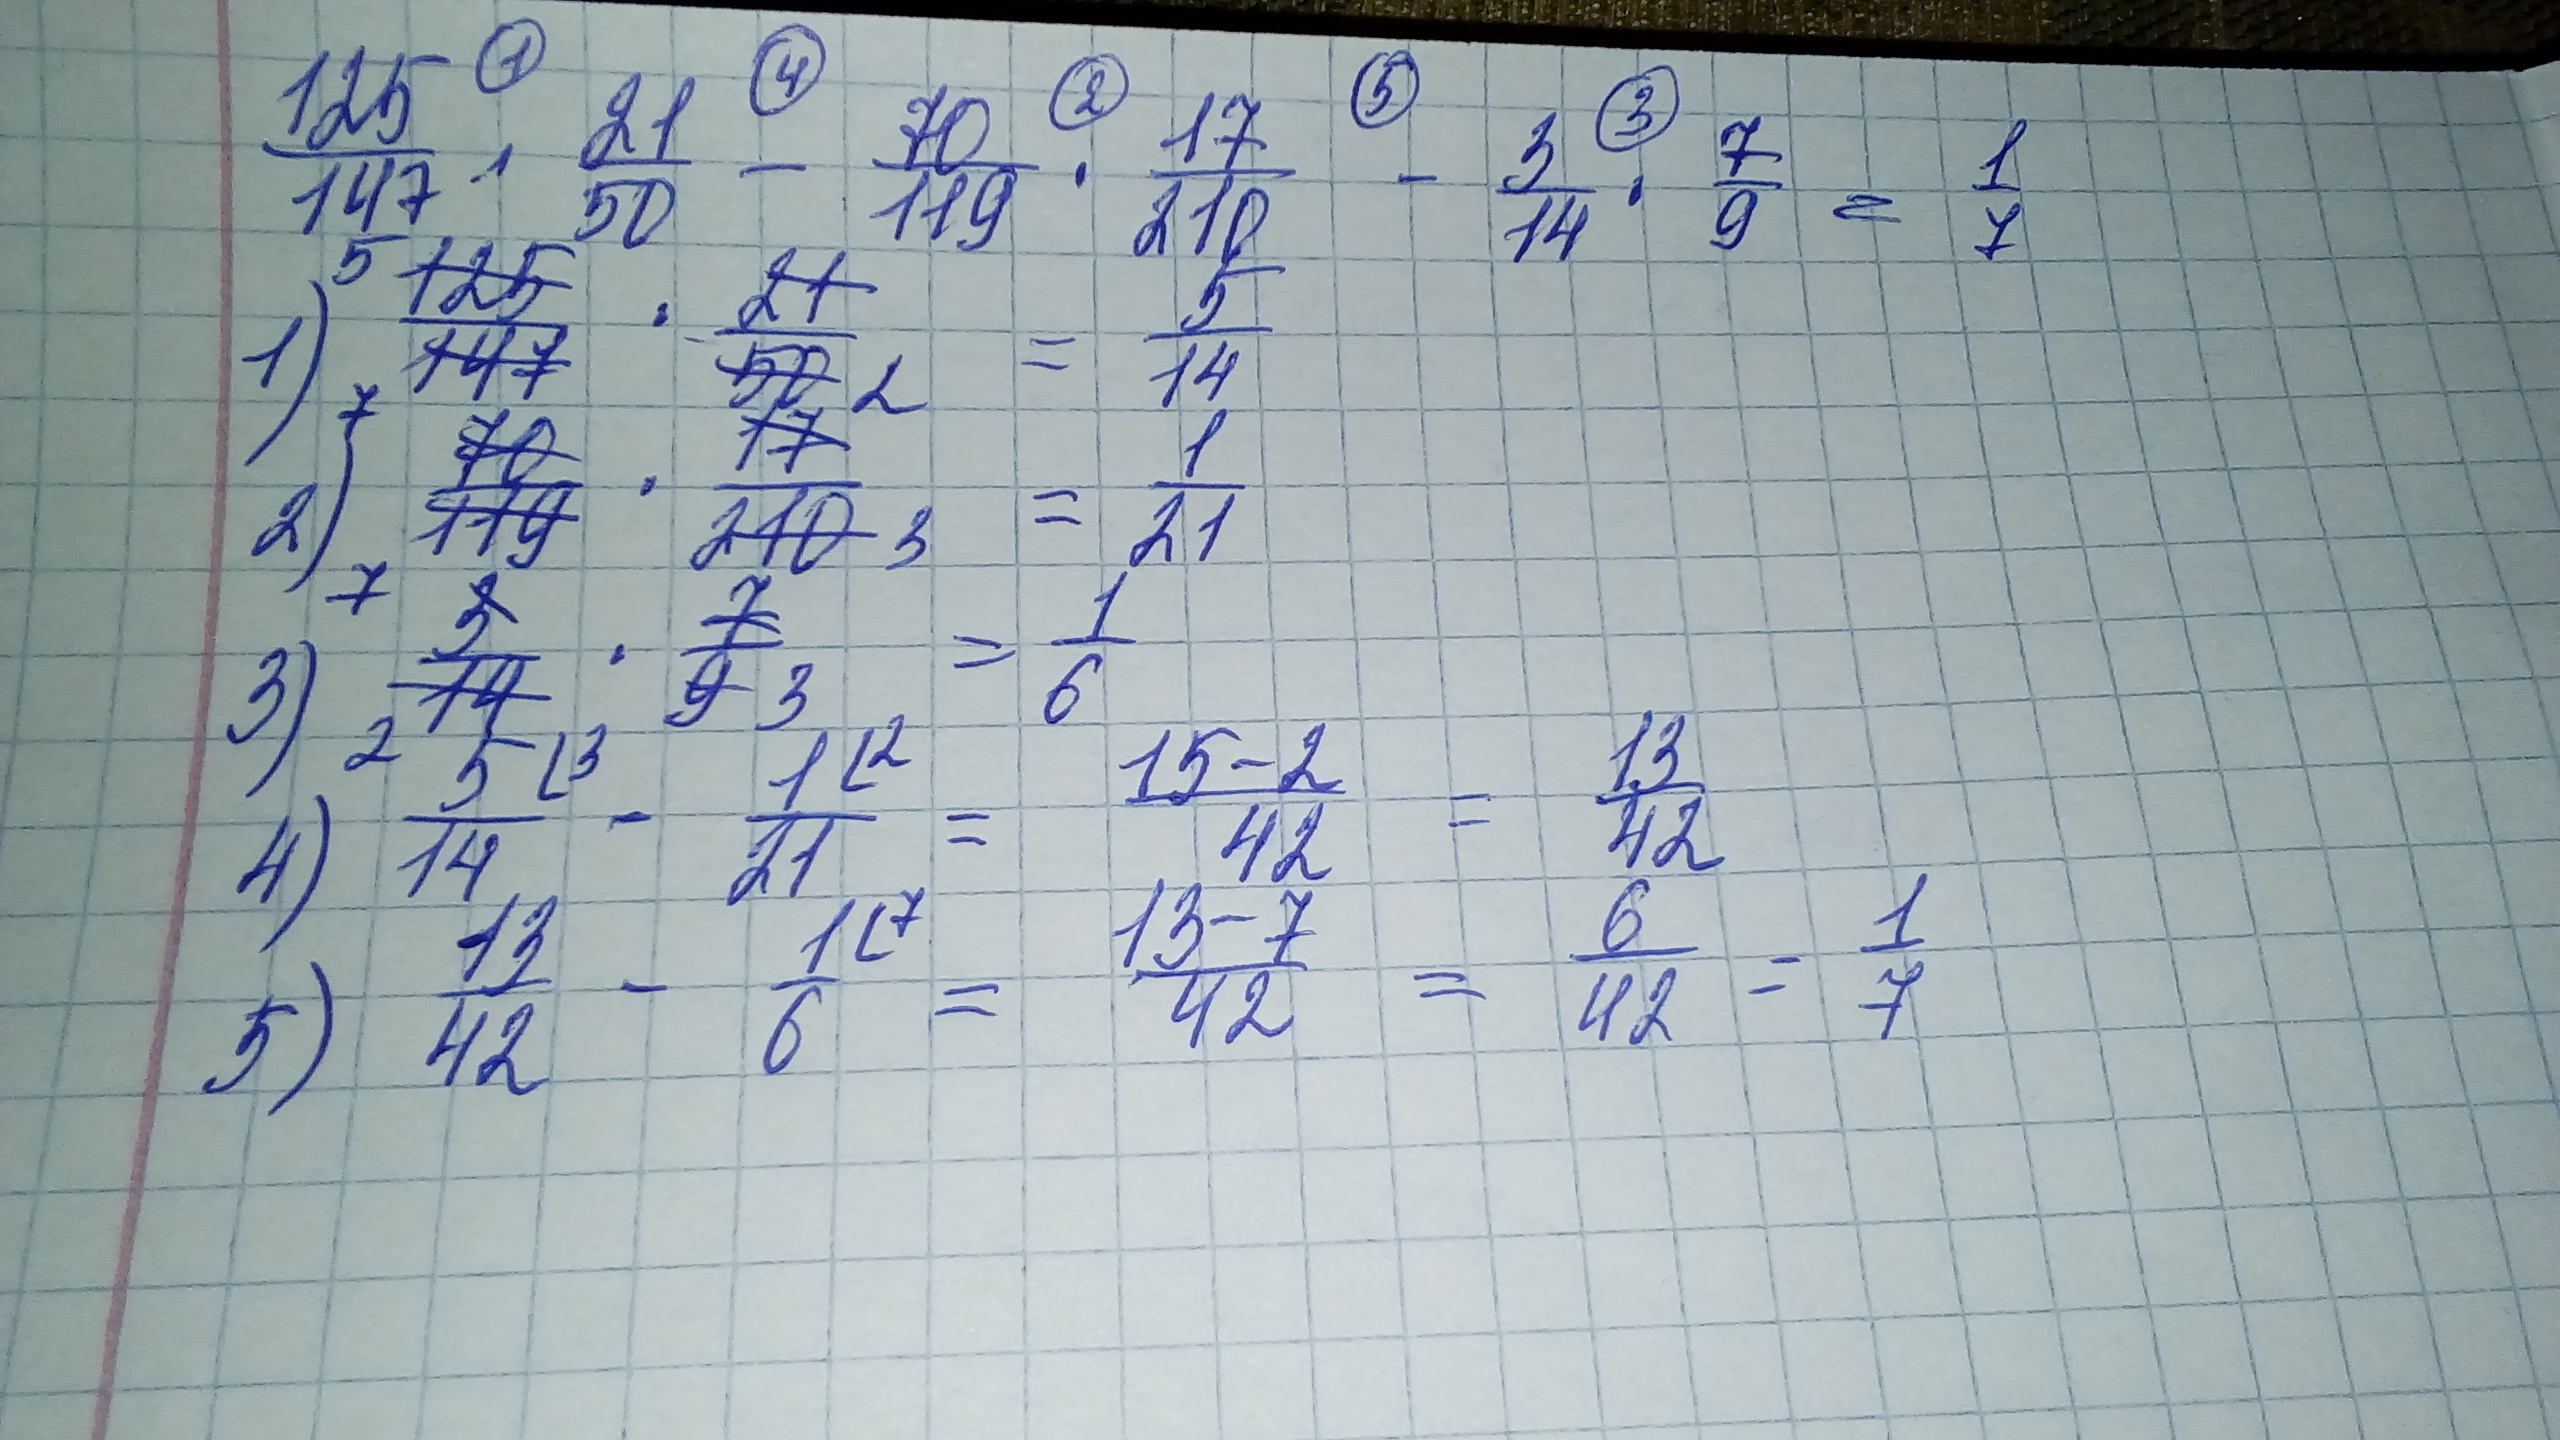 ① ④ ② ⑤ ③
125/147 · 21/50 - 70/119 · 17/210 - 3/14 · 7/9 = 1/7
1) 5 125/147 7 · 21/50 2 = 5/14
2) 70/119 7 · 17/210 3 = 1/21
3) 3/14 2 · 7/9 3 = 1/6
4) 5⌊3/14 - 1⌊2/21 = 15-2/42 = 13/42
5) 13/42 - 1⌊7/6 = 13-7/42 = 6/42 = 1/7